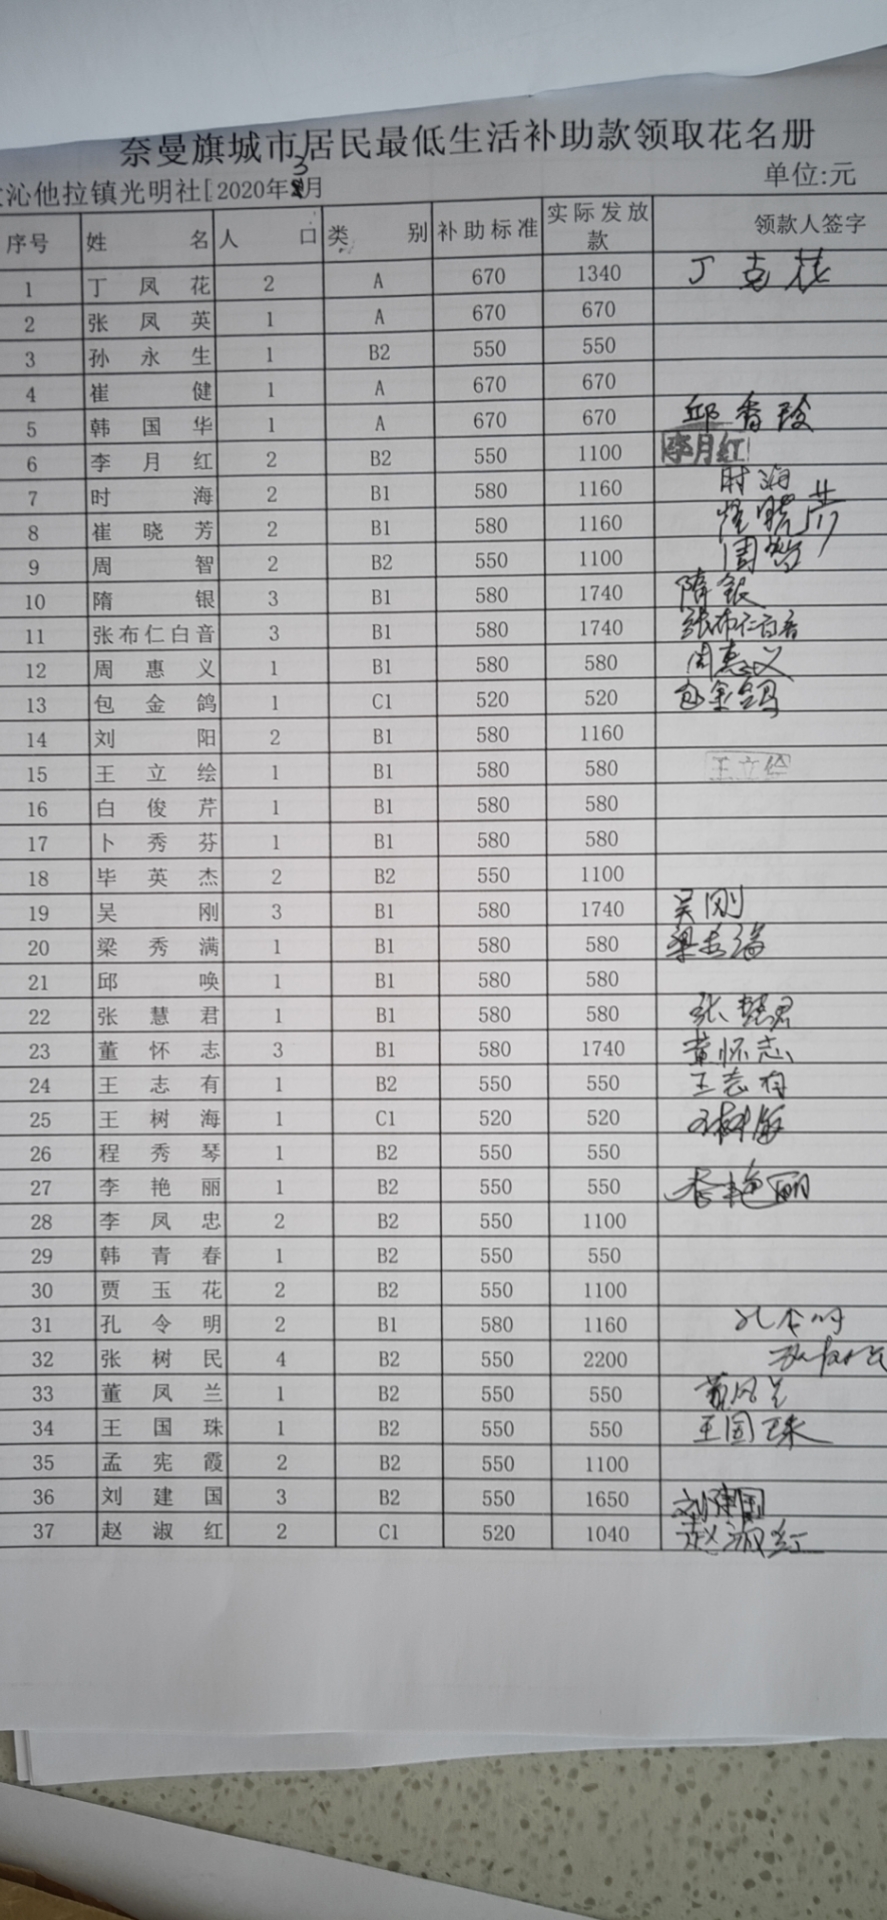 奈曼旗城市居民最低生活补助款领取花名册
沁他拉镇光明社[2020年3月 单位:元
序号 姓名 人口 类别 补助标准 实际发放款 领款人签字
1 丁凤花 2 A 670 1340
2 张凤英 1 A 670 670
3 孙永生 1 B2 550 550
4 崔健 1 A 670 670
5 韩国华 1 A 670 670 邱香玲
6 李月红 2 B2 550 1100 李月红
7 时海 2 B1 580 1160 时海
8 崔晓芳 2 B1 580 1160
9 周智 2 B2 550 1100 周智
10 隋银 3 B1 580 1740 隋银
11 张布仁白音 3 B1 580 1740 张布仁白音
12 周惠义 1 B1 580 580 周惠义
13 包金鸽 1 C1 520 520 包金鸽
14 刘阳 2 B1 580 1160
15 王立绘 1 B1 580 580 王立绘
16 白俊芹 1 B1 580 580
17 卜秀芬 1 B1 580 580
18 毕英杰 2 B2 550 1100
19 吴刚 3 B1 580 1740 吴刚
20 梁秀满 1 B1 580 580 梁秀满
21 邱唤 1 B1 580 580
22 张慧君 1 B1 580 580 张慧君
23 董怀志 3 B1 580 1740 董怀志
24 王志有 1 B2 550 550 王志有
25 王树海 1 C1 520 520
26 程秀琴 1 B2 550 550
27 李艳丽 1 B2 550 550 李艳丽
28 李凤忠 2 B2 550 1100
29 韩青春 1 B2 550 550
30 贾玉花 2 B2 550 1100
31 孔令明 2 B1 580 1160 孔令明
32 张树民 4 B2 550 2200
33 董凤兰 1 B2 550 550 董凤兰
34 王国珠 1 B2 550 550 王国珠
35 孟宪霞 2 B2 550 1100
36 刘建国 3 B2 550 1650 刘建国
37 赵淑红 2 C1 520 1040 赵淑红